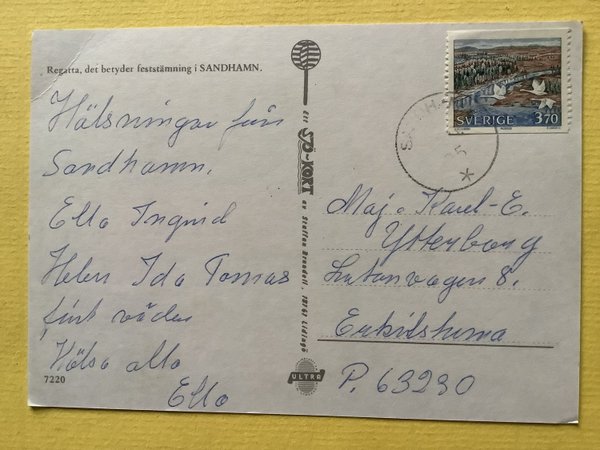 Regatta, det betyder feststämning i SANDHAMN.
Hälsningar från
Sandhamn.
Ella Ingrid
Helen Ida Tomas
fint väder
Hälsa alla
Ella
7220
Ett SÖ-KORT av Staffan Brundell, 18161 Lidingö
ULTRA
SVERIGE 3.70
Maj o Karl-E.
Ytterborg
8.
Eskilstuna
P. 63230